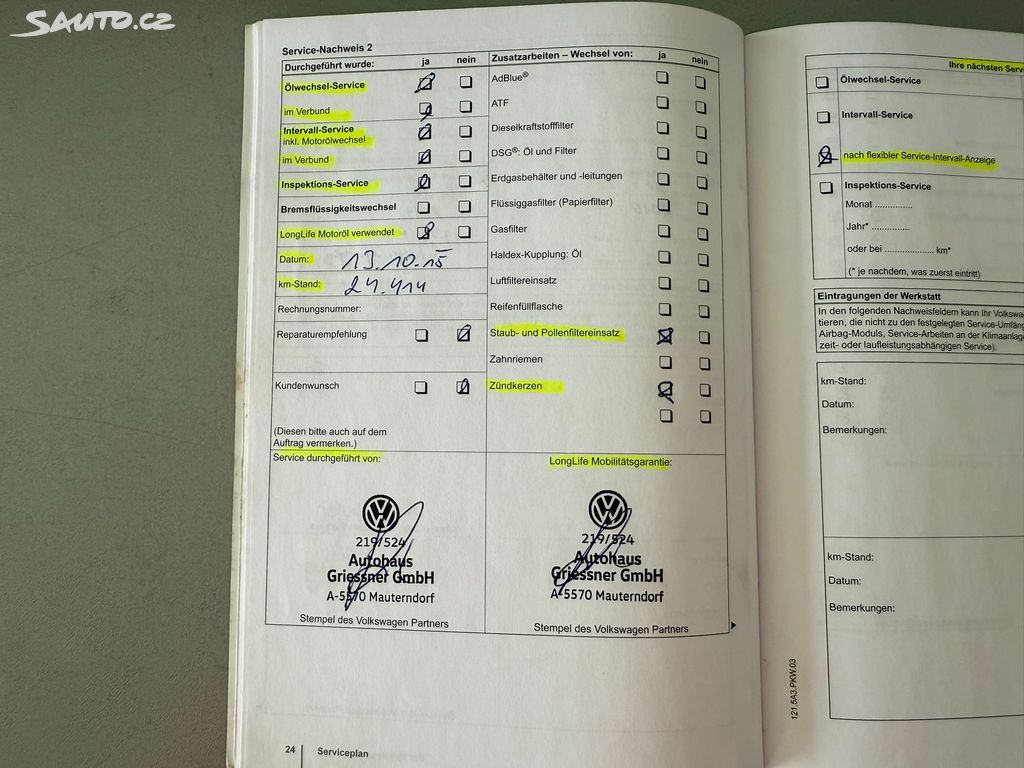 SAUTO.CZ
Service-Nachweis 2
Durchgeführt wurde: ja nein
Ölwechsel-Service
im Verbund
Intervall-Service
inkl. Motorölwechsel
im Verbund
Inspektions-Service
Bremsflüssigkeitswechsel
LongLife Motoröl verwendet
Datum: 13.10.15
km-Stand:
Rechnungsnummer:
Reparaturempfehlung
Kundenwunsch
(Diesen bitte auch auf dem
Auftrag vermerken.)
Zusatzarbeiten – Wechsel von: ja nein
AdBlue®
ATF
Dieselkraftstofffilter
DSG®: Öl und Filter
Erdgasbehälter und -leitungen
Flüssiggasfilter (Papierfilter)
Gasfilter
Haldex-Kupplung: Öl
Luftfiltereinsatz
Reifenfüllflasche
Staub- und Pollenfiltereinsatz
Zahnriemen
Zündkerzen
Service durchgeführt von:
219/524
Autohaus
Griessner GmbH
A-5570 Mauterndorf
Stempel des Volkswagen Partners
LongLife Mobilitätsgarantie:
219/524
Autohaus
Griessner GmbH
A-5570 Mauterndorf
Stempel des Volkswagen Partners
24 Serviceplan
Ihre nächsten
Ölwechsel-Service
Intervall-Service
nach flexibler Service-Intervall-Anzeige
Inspektions-Service
Monat ...............
Jahr* ...............
oder bei ................... km*
(* je nachdem, was zuerst eintritt)
Eintragungen der Werkstatt
In den folgenden Nachweisfeldern kann Ihr
tieren, die nicht zu den festgelegten
Airbag-Moduls, Service-Arbeiten an der
zeit- oder laufleistungsabhängigen Service).
km-Stand:
Datum:
Bemerkungen:
km-Stand:
Datum:
Bemerkungen:
121.5A3.PKW.03